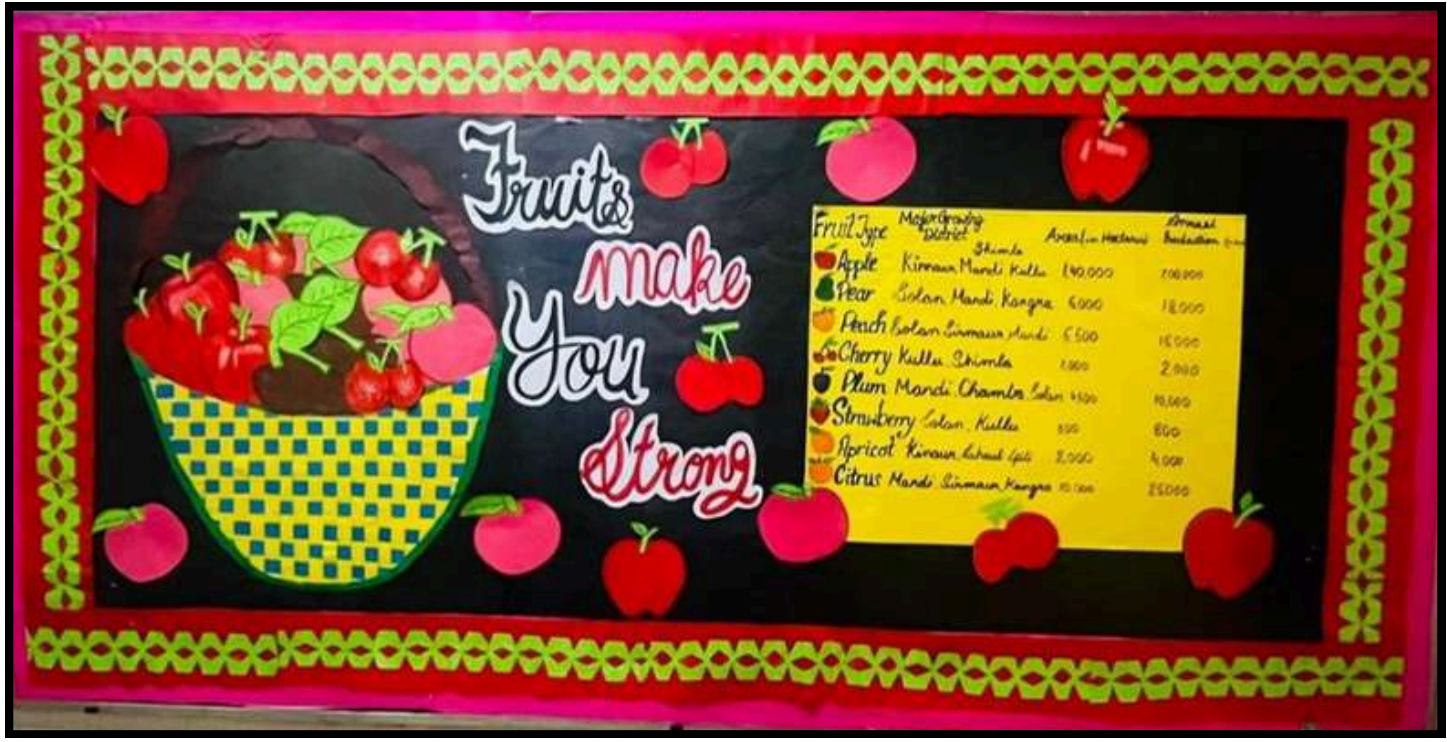 Fruits
make
You
Strong
Fruit Type Major Growing District Area (in Hectares) Annual Production
Shimla
Apple Kinnaur Mandi Kullu 1,40,000 700,000
Pear Solan Mandi, Kangra 6,000 18,000
Peach Solan Sirmaur Mandi 5,500 15,000
Cherry Kullu Shimla 2,000
Plum Mandi Chamba Solan 4500 10,000
Strawberry Solan, Kullu 600
Apricot Kinaur Lahaul Spiti 2,000 4,000
Citrus Mandi Sirmaur, Kangra 10,000 25,000